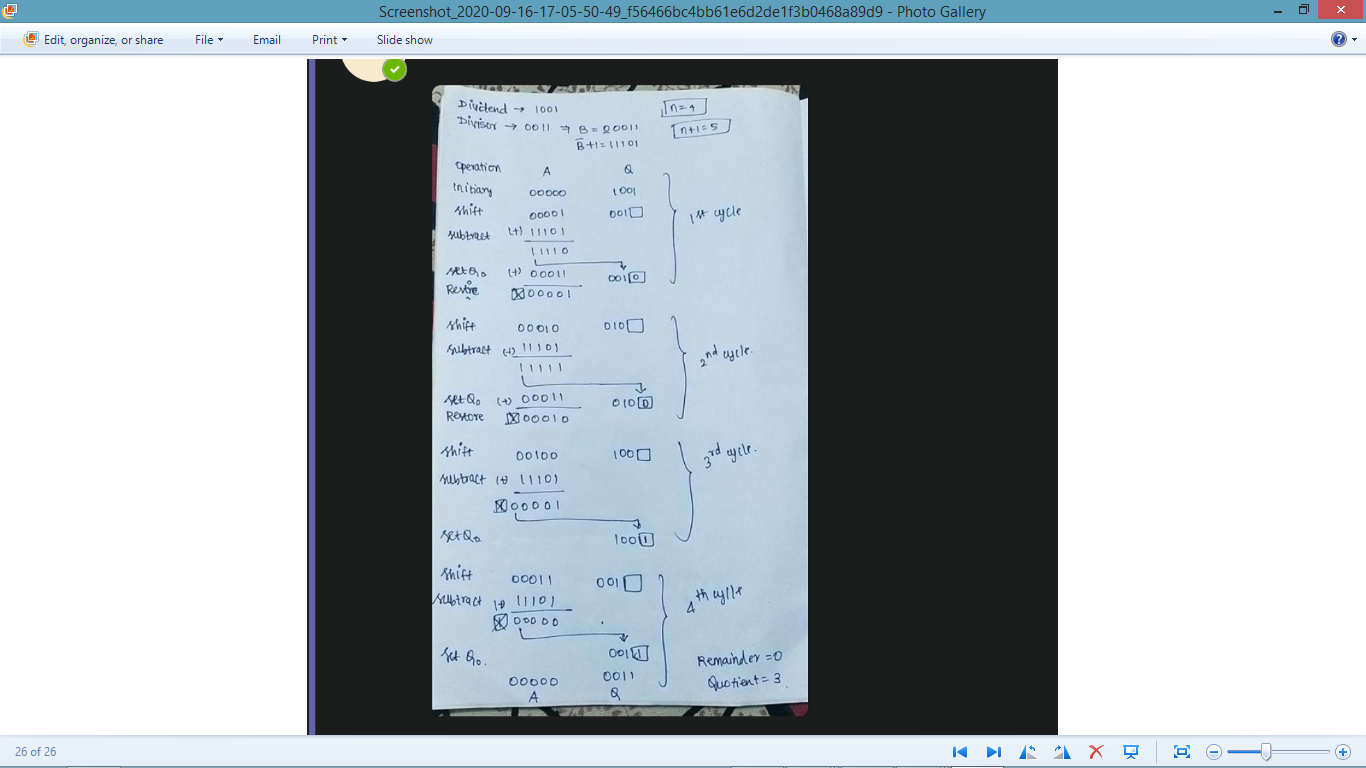 Screenshot_2020-09-16-17-05-50-49_f56466bc4bb61e6d2de1f3b0468a89d9 - Photo Gallery
Edit, organize, or share File Email Print Slide show
Dividend → 1001 n=4
Divisor → 0011 ⇒ B = 00011 n+1=5
B̅+1=11101
operation A Q
initiary 00000 1001
shift 00001 001□
subtract (+) 11101
11110
1st cycle
set Q0 (+) 00011 001 0
Restore 00001
shift 00010 010□
subtract (+) 11101
11111
2nd cycle.
set Q0 (+) 00011 010 0
Restore 00010
shift 00100 100□
subtract (+) 11101
00001
3rd cycle.
set Q0 100 1
shift 00011 001□
subtract (+) 11101
00000
4th cylle
set Q0. 001 1
00000 0011
A Q
Remainder = 0
Quotient = 3.
26 of 26